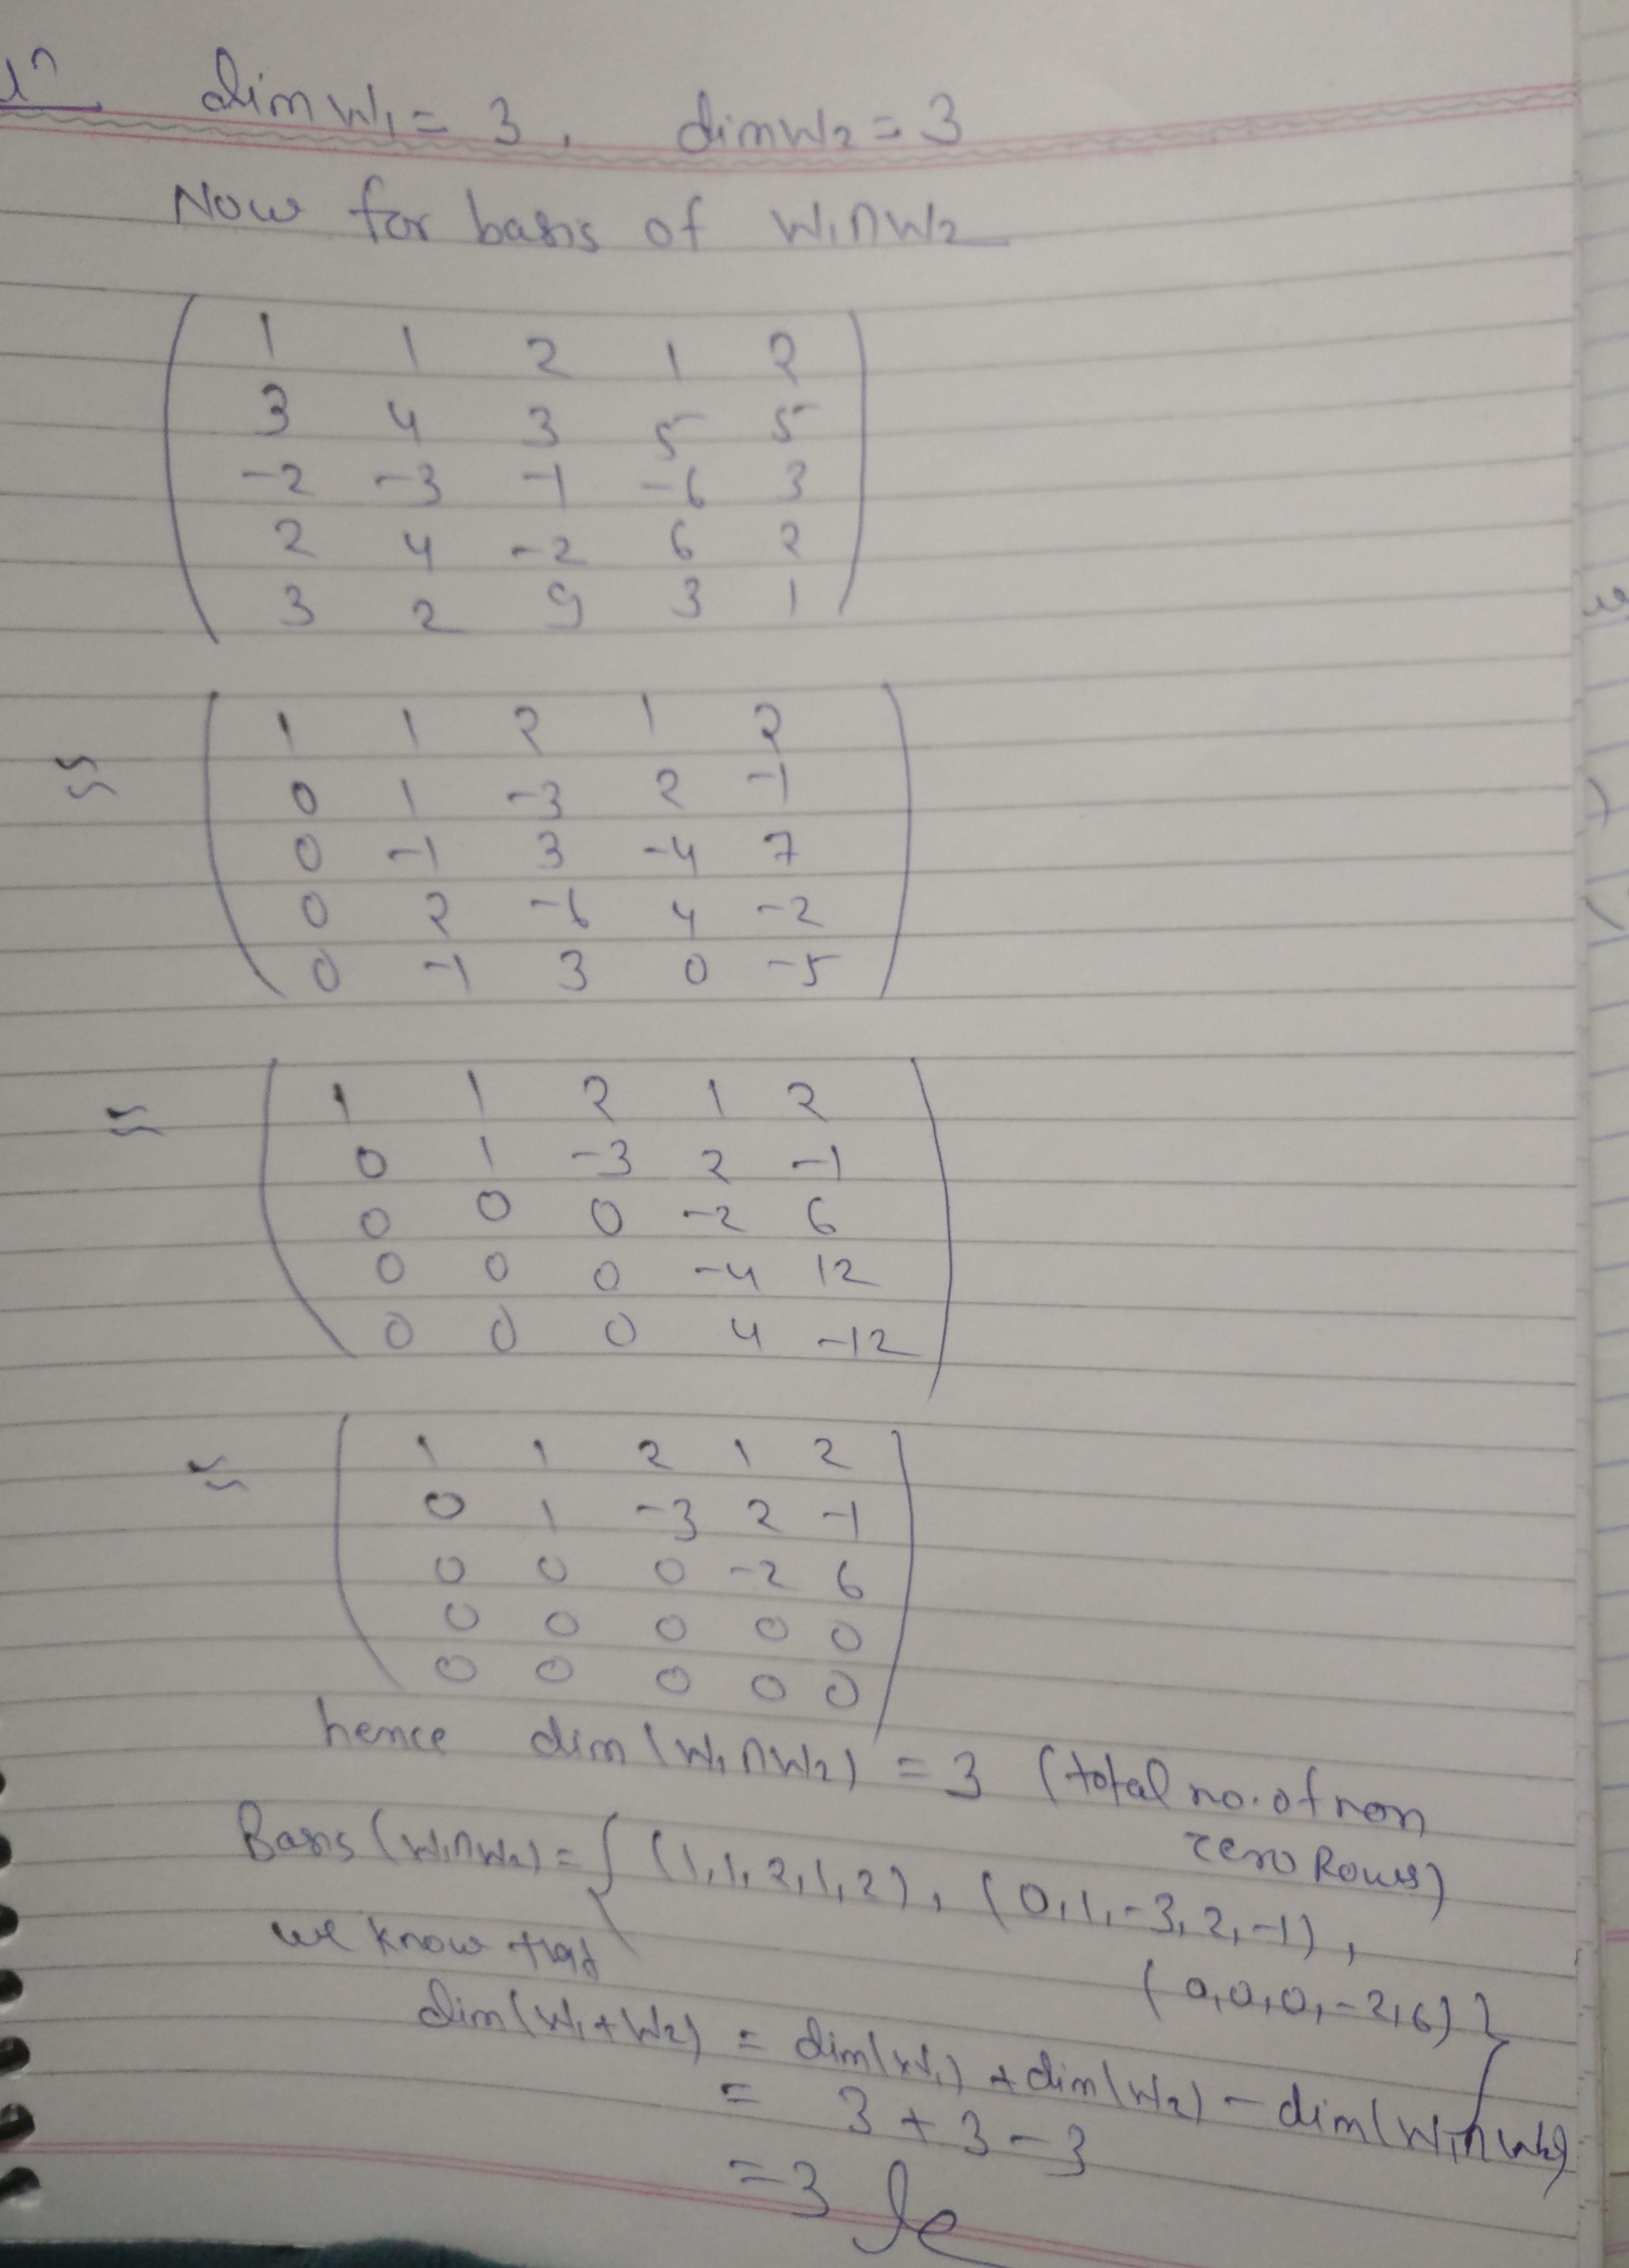 dim W₁ = 3, dim W₂ = 3
Now for basis of W₁∩W₂
1 1 2 1 2
3 4 3 5 5
-2 -3 -1 -6 3
2 4 -2 6 2
3 2 9 3 1
≈
1 1 2 1 2
0 1 -3 2 -1
0 -1 3 -4 7
0 2 -6 4 -2
0 -1 3 0 -5
≈
1 1 2 1 2
0 1 -3 2 -1
0 0 0 -2 6
0 0 0 -4 12
0 0 0 4 -12
≈
1 1 2 1 2
0 1 -3 2 -1
0 0 0 -2 6
0 0 0 0 0
0 0 0 0 0
hence dim(W₁∩W₂) = 3 (total no. of non
zero Rows)
Basis (W₁∩W₂) = { (1,1,2,1,2), (0,1,-3,2,-1),
(0,0,0,-2,6) }
we know that
dim(W₁+W₂) = dim(W₁) + dim(W₂) - dim(W₁∩W₂)
= 3 + 3 - 3
= 3